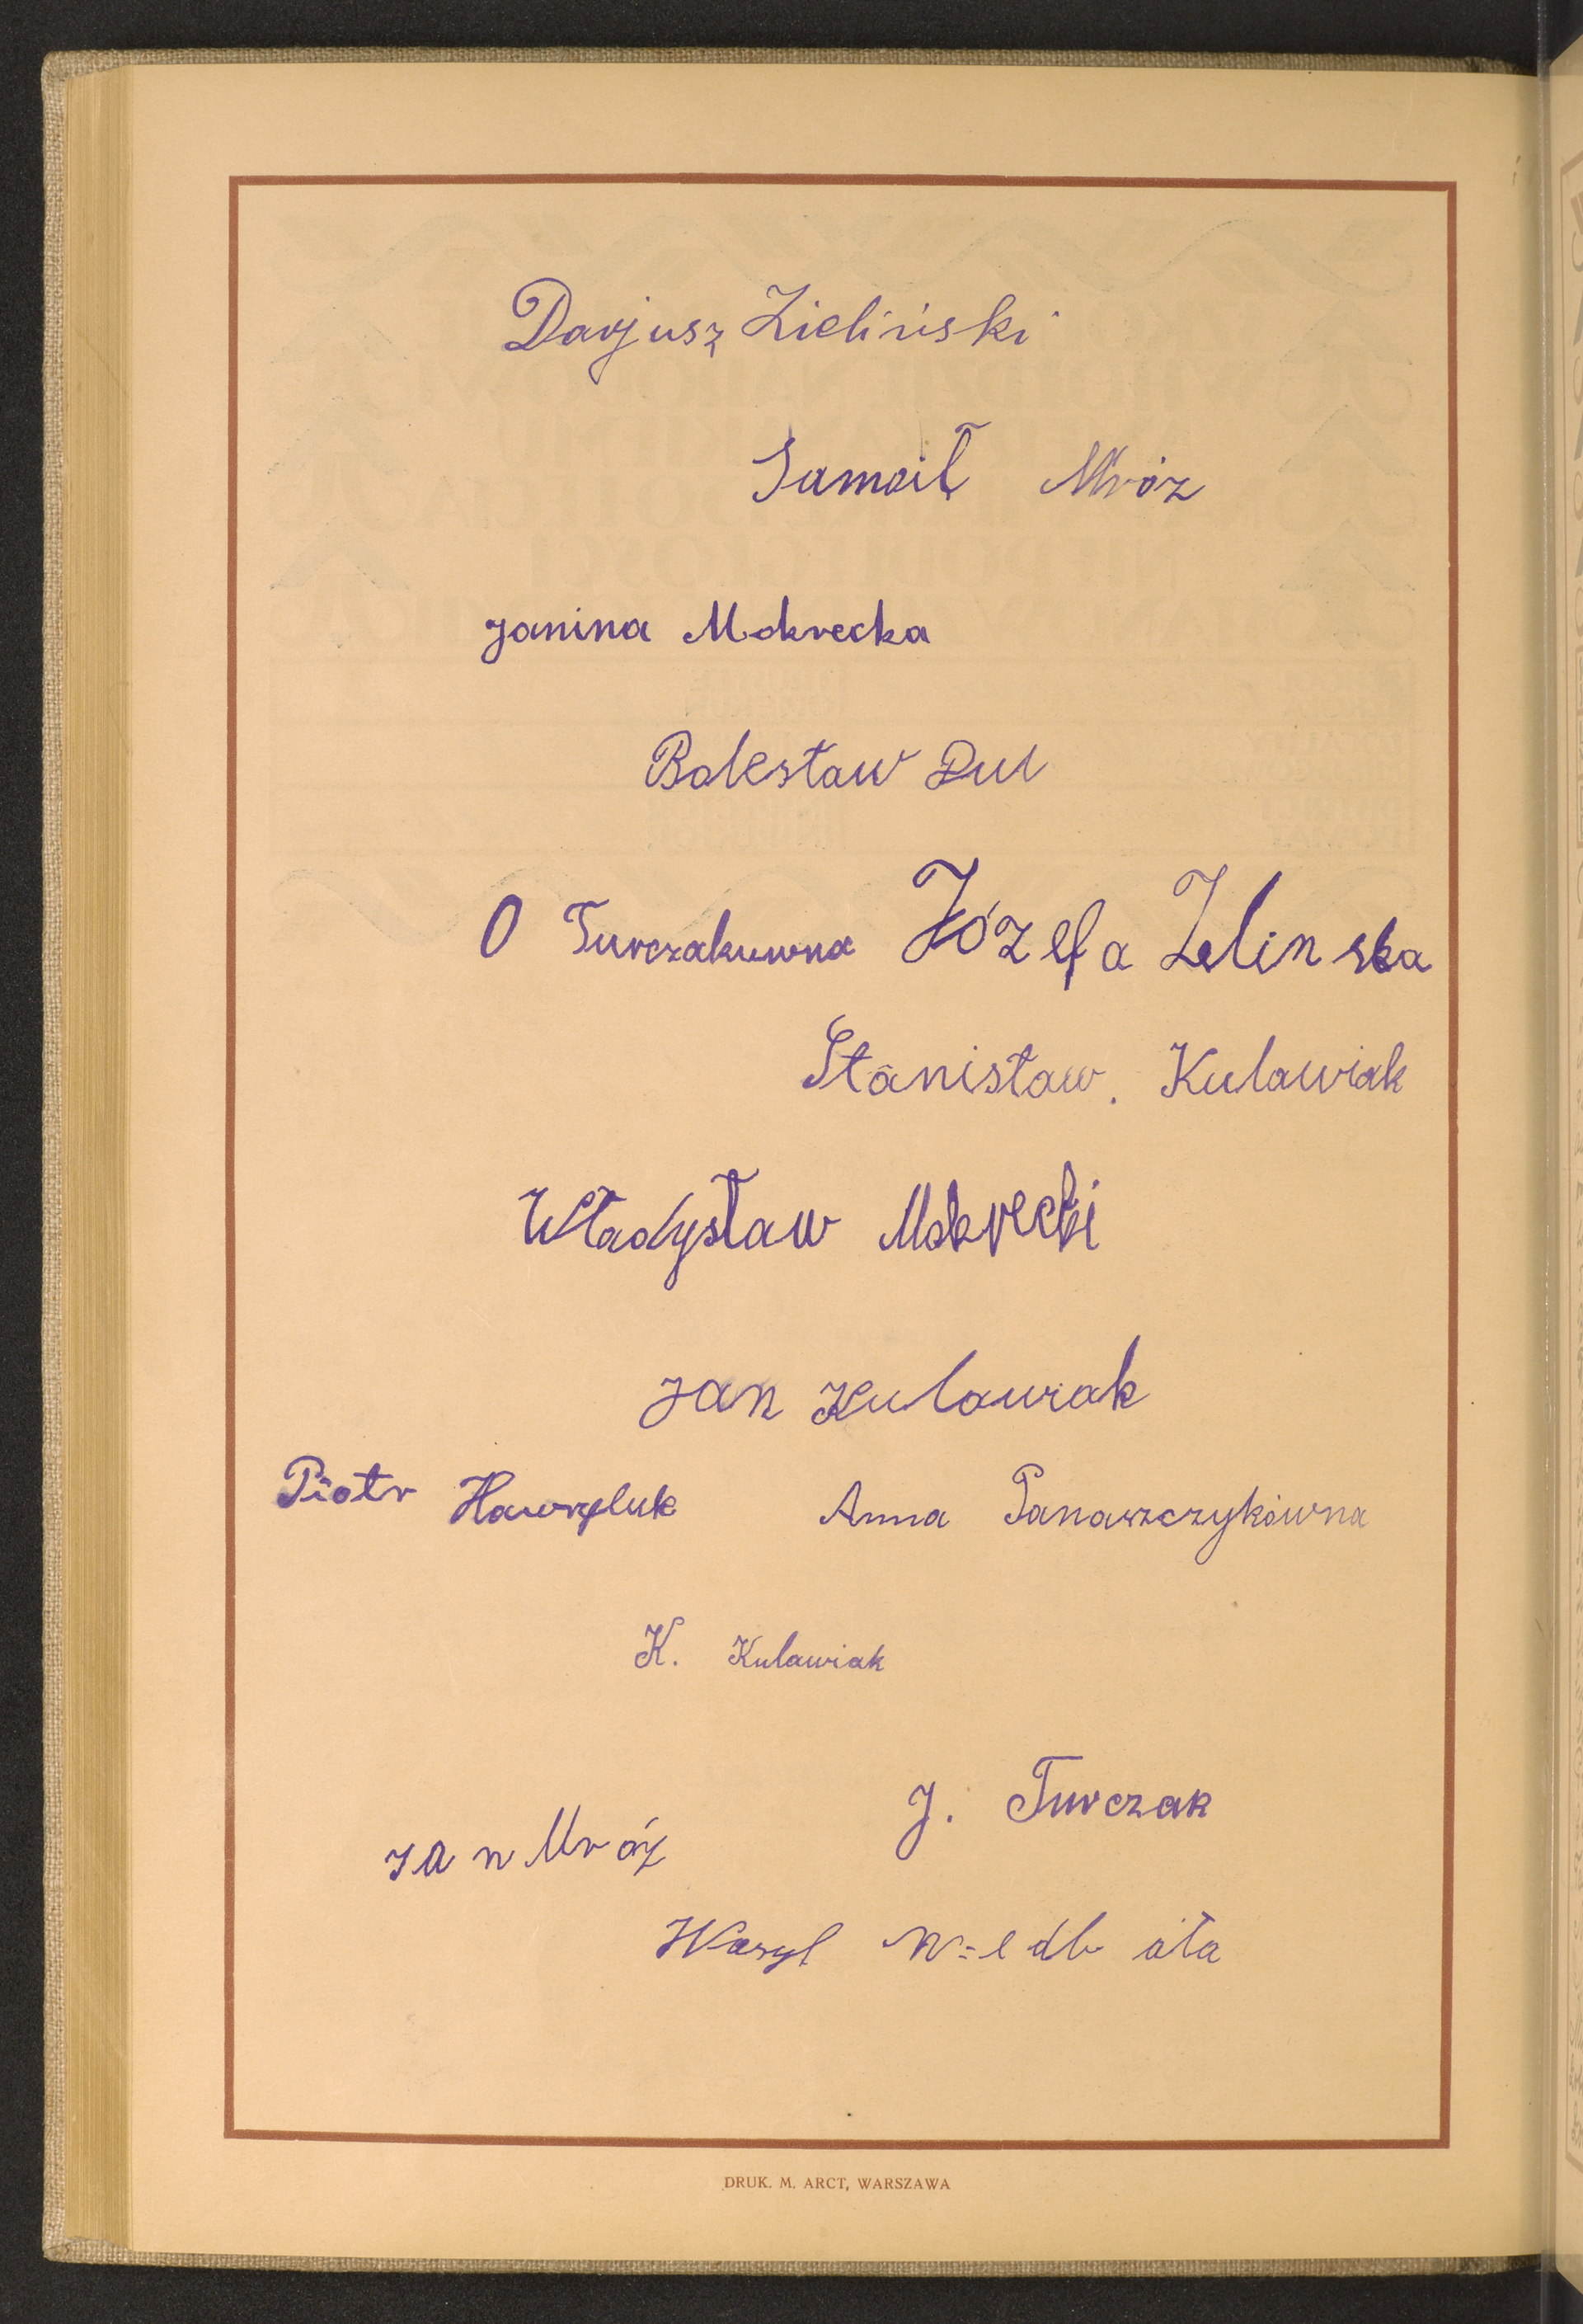 Darjusz Zieliński
Samoił Mróz
Janina Mokrecka
Bolesław Dul
O Turczakuwna Józefa Zelinska
Stanisław. Kulawiak
Władysław Mokrecki
Jan Kulawiak
Piotr Hawryluk Anna Panaszczykówna
K. Kulawiak
J. Turczak
Jan Mróz
Wasyl
DRUK. M. ARCT, WARSZAWA